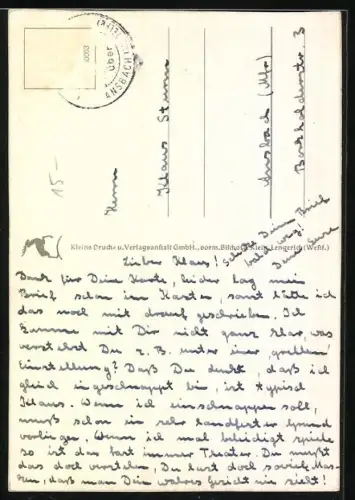 ANSBACH
über
15-
Herrn
Klaus Sturm
Ansbach (Mfr.)
Kleins Druck- u. Verlagsanstalt GmbH., vorm. Bischof & Klein, Lengerich (Westf.)
Lieber Klaus!
Dank für Deine Karte, leider lag mein
Brief schon im Kasten, sonst hätte ich
das noch mit drauf geschrieben. Ich
komme mit Dir nicht ganz klar, was
verstehst Du z. B. unter einer „großen"
Einstellung? Daß Du denkst, daß ich
gleich eingeschnappt bin, ist typisch
Klaus. Wenn ich einschnappen soll,
muß schon ein sehr handfester Grund
vorliegen. Wenn ich mal beleidigt spiele
so ist das fast immer Theater. Du mußt
das doch verstehen, Du hast doch soviele Mas-
ken, daß man Dein wahres Gesicht nie sieht!
Schreibe Deinen Brief
bald
Deine